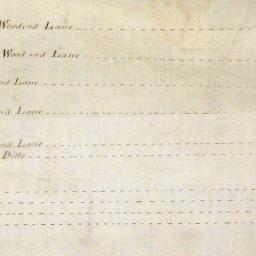 Woodend Lane
Wood end Lane
nd Lane
nd Lane
nd Lane
Ditto